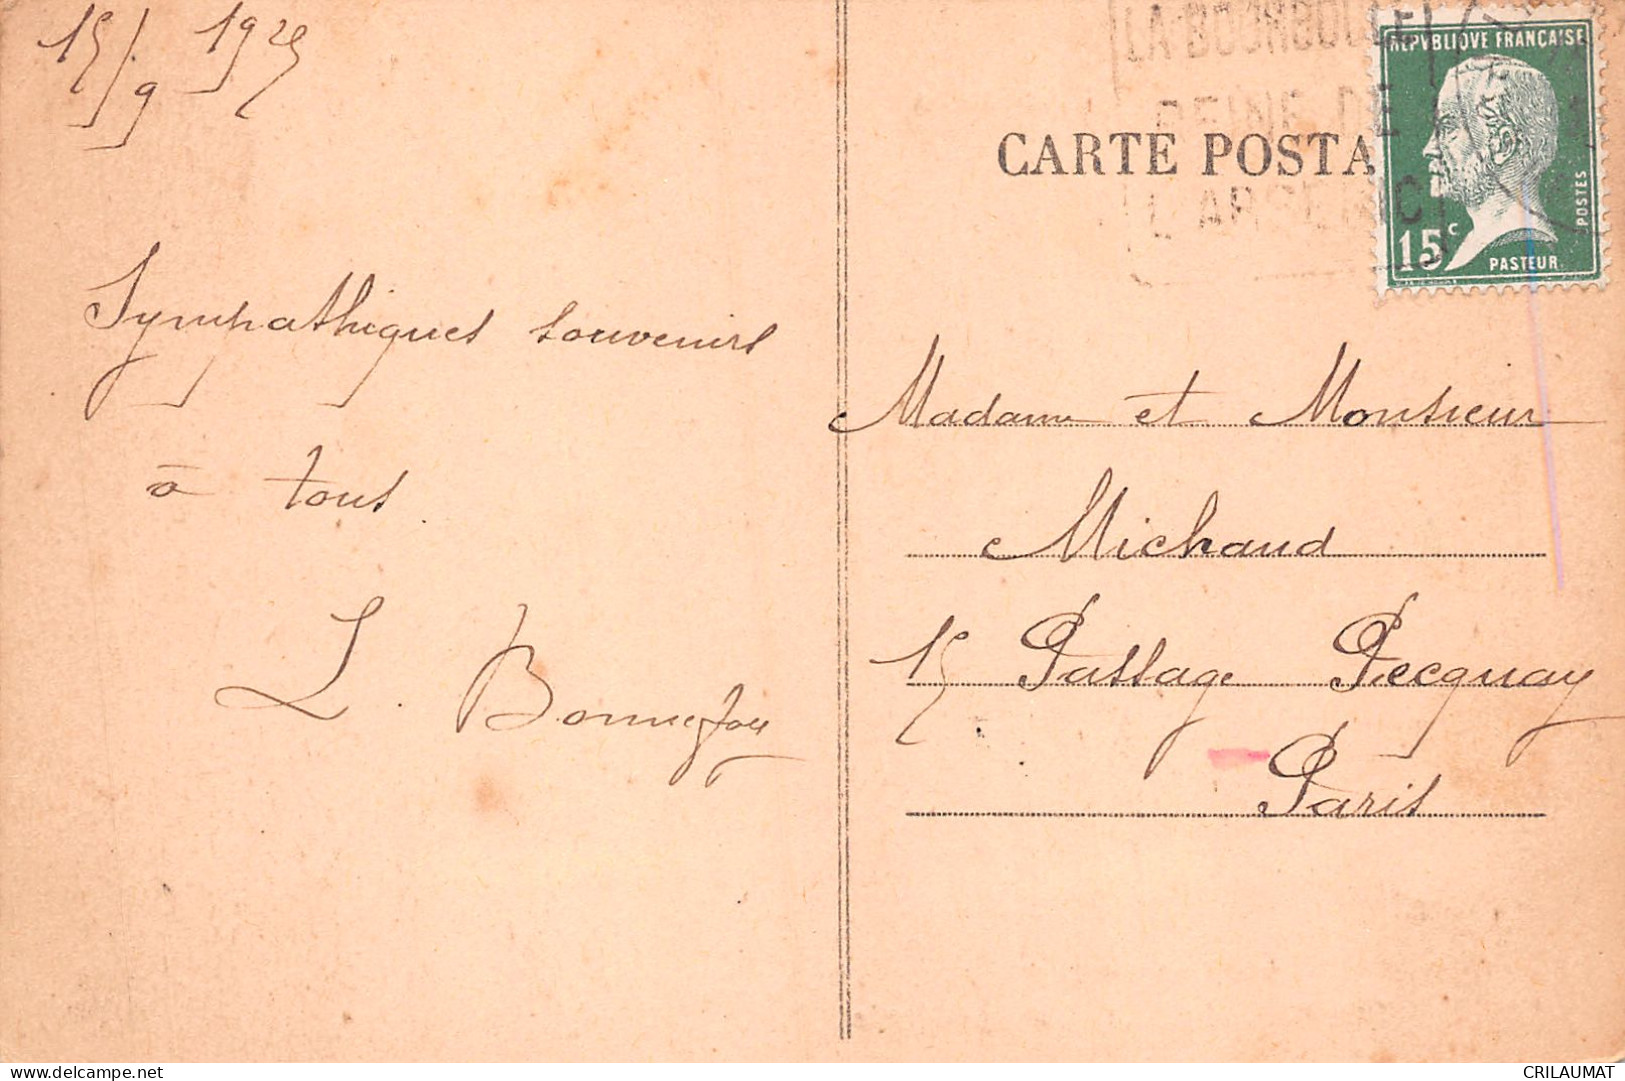 15/9 1925
Sympathiques souvenirs
à tous.
L. Bonnefou
LA BOURBOULE
REINE DE
L'ARSENIC
REPVBLIQVE FRANÇAISE
15c
POSTES
PASTEUR
CARTE POSTA
Madame et Monsieur
Michaud
15 Passage Pecquay
Paris
delcampe.net
CRILAUMAT